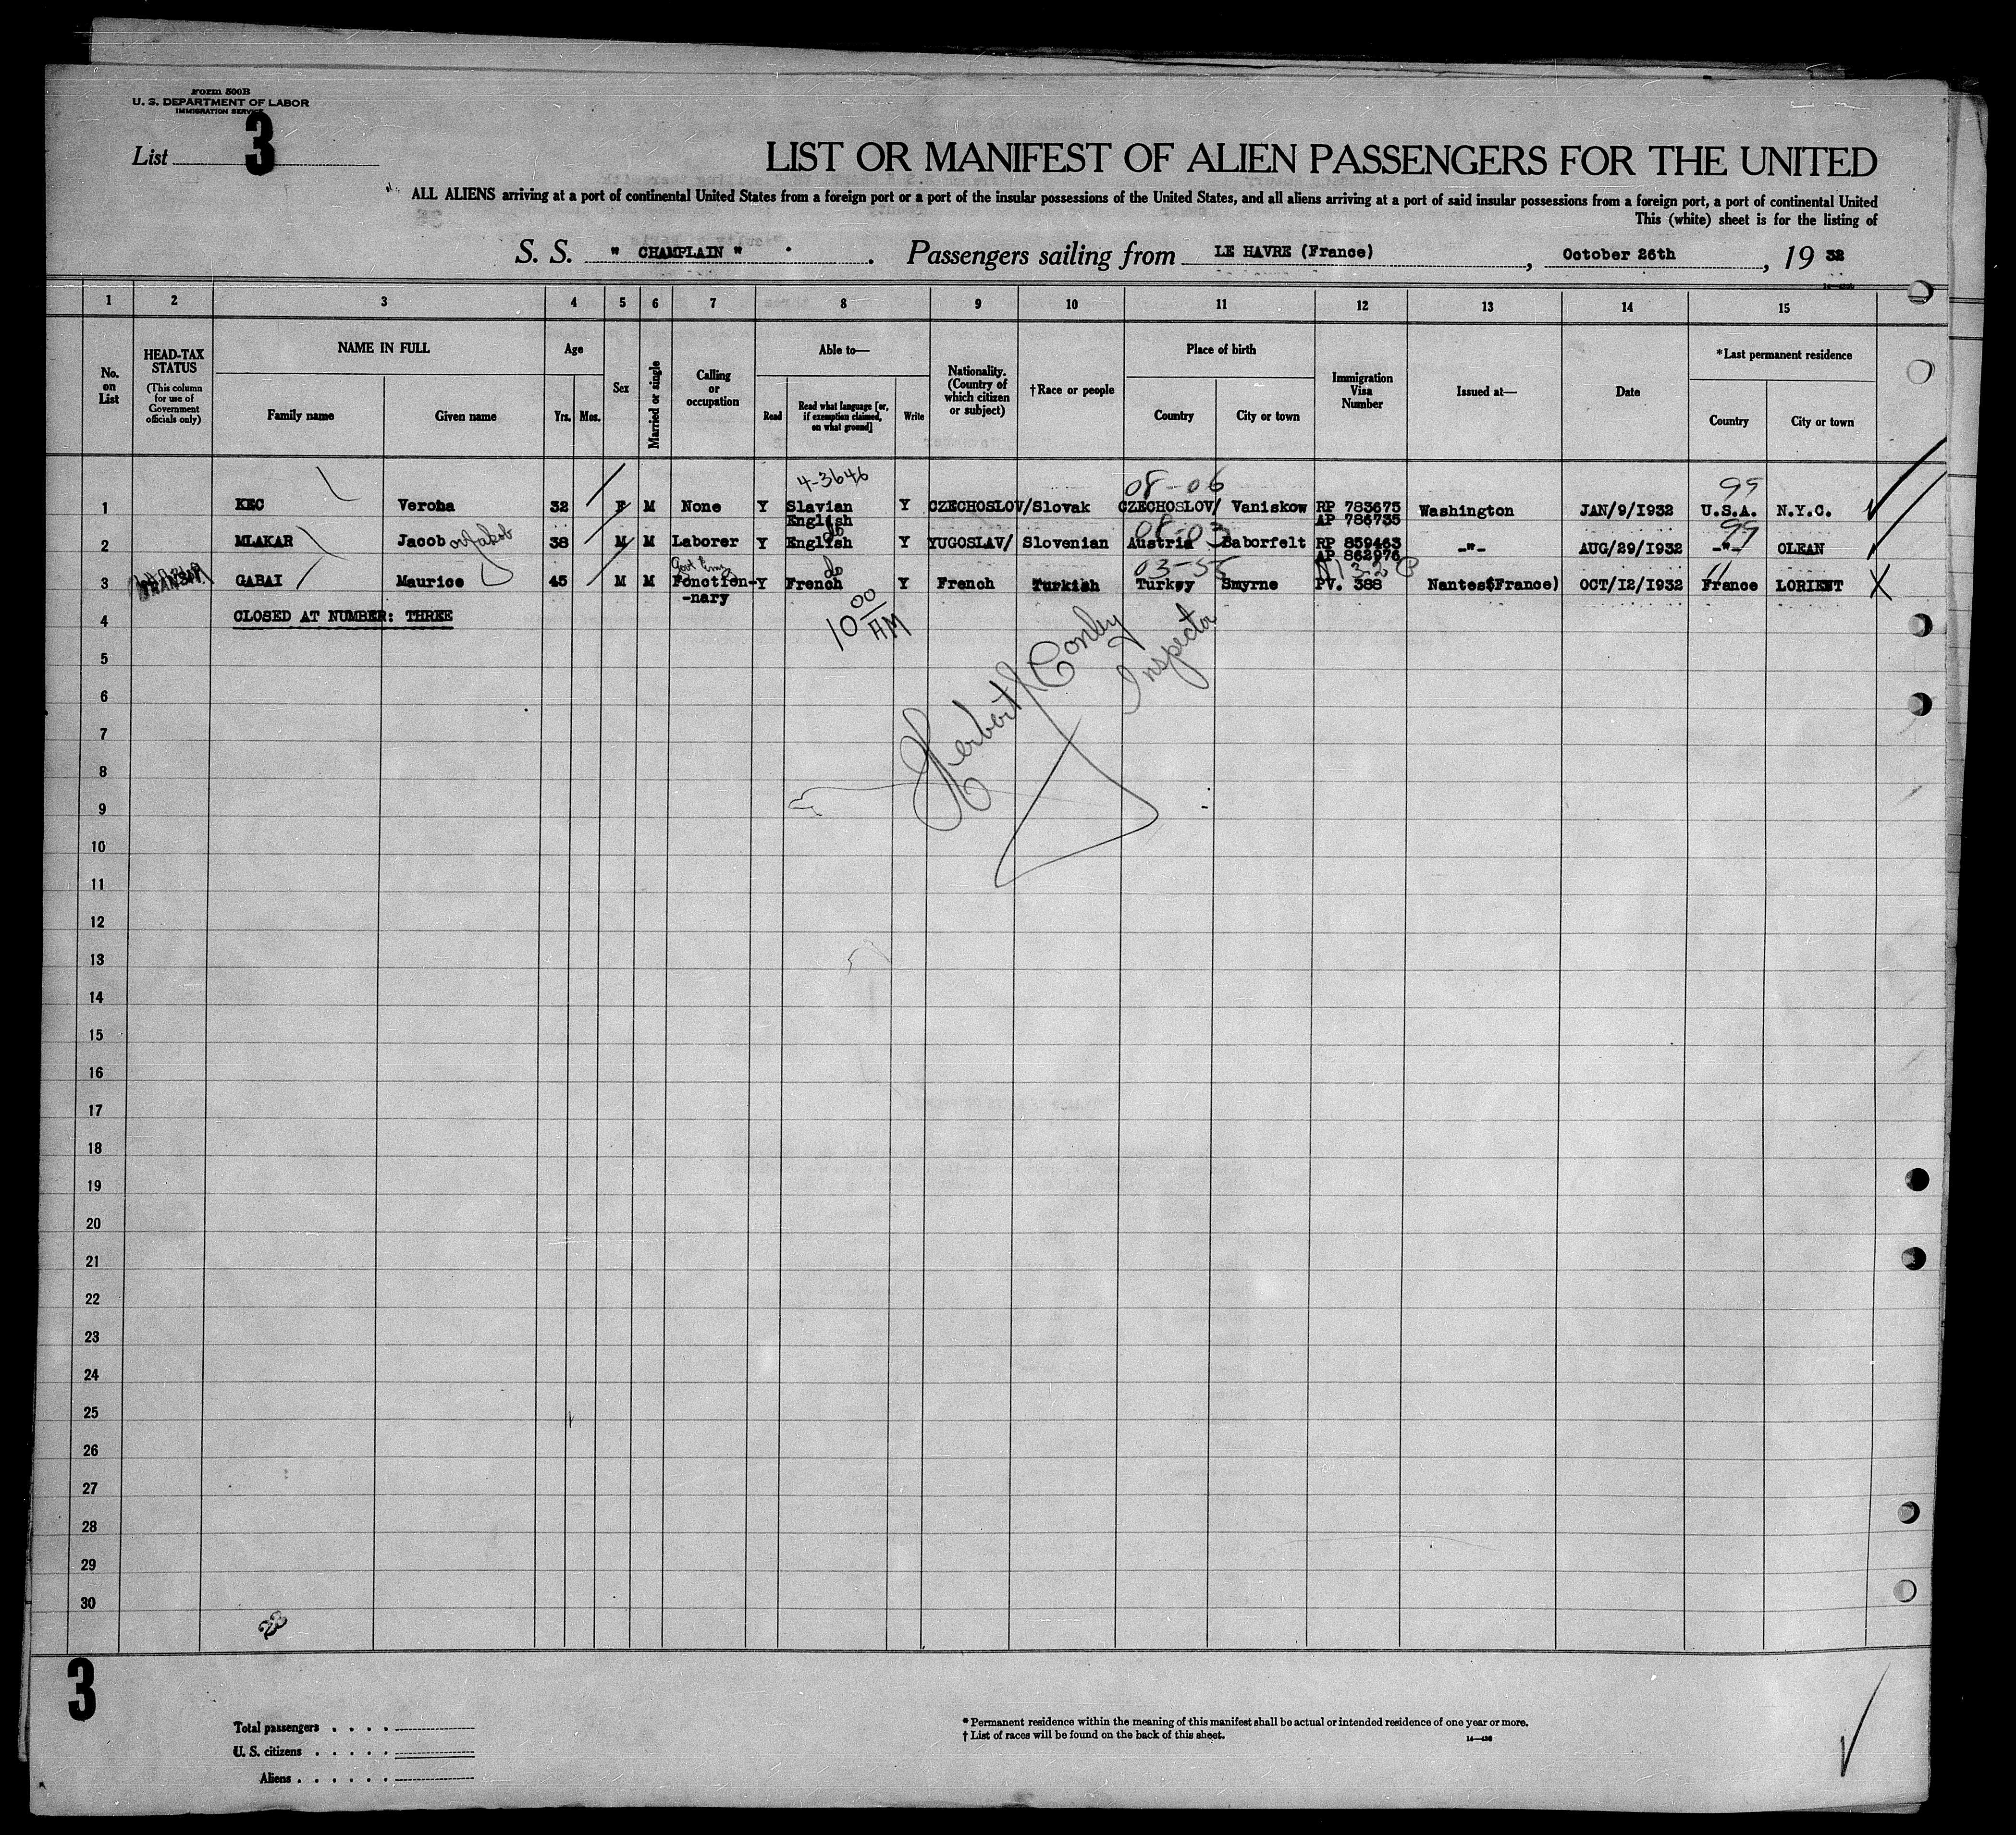 Form 500B
U. S. DEPARTMENT OF LABOR
IMMIGRATION SERVICE
List 3
LIST OR MANIFEST OF ALIEN PASSENGERS FOR THE UNITED
ALL ALIENS arriving at a port of continental United States from a foreign port or a port of the insular possessions of the United States, and all aliens arriving at a port of said insular possessions from a foreign port, a port of continental United
This (white) sheet is for the listing of
S. S. " CHAMPLAIN " . Passengers sailing from LE HAVRE (France) , October 26th , 19 32
1 2 3 4 5 6 7 8 9 10 11 12 13 14 15
No. on List
HEAD-TAX STATUS
(This column for use of Government officials only)
NAME IN FULL
Family name Given name
Age
Yrs. Mos.
Sex
Married or single
Calling or occupation
Able to—
Read
Read what language [or, if exemption claimed, on what ground]
Write
Nationality. (Country of which citizen or subject)
†Race or people
Place of birth
Country City or town
Immigration Visa Number
Issued at—
Date
*Last permanent residence
Country City or town
4-3646 08-06 99
1 KEC Verona 32 F M None Y Slavian Y CZECHOSLOV/Slovak CZECHOSLOV/ Vaniskow RP 783675 Washington JAN/9/1932 U.S.A. N.Y.C.
English AP 786735
do 08-03 99
2 MLAKAR Jacob or Jakob 38 M M Laborer Y English Y YUGOSLAV/ Slovenian Austria Baborfelt RP 859463 -"- AUG/29/1932 -"- OLEAN
AP 862976
Govt Emp do 03-55
3 TRANSIT GABAI Maurice 45 M M Fonction- Y French Y French Turkish Turkey Smyrne PV. 388 Nantes(France) OCT/12/1932 France LORIENT
-nary
4 CLOSED AT NUMBER: THREE
10 00 AM
Herbert J Conley
Inspector
5
6
7
8
9
10
11
12
13
14
15
16
17
18
19
20
21
22
23
24
25
26
27
28
29
30
3
Total passengers . . . .
U. S. citizens . . . . .
Aliens . . . . . .
* Permanent residence within the meaning of this manifest shall be actual or intended residence of one year or more.
† List of races will be found on the back of this sheet.
14—430